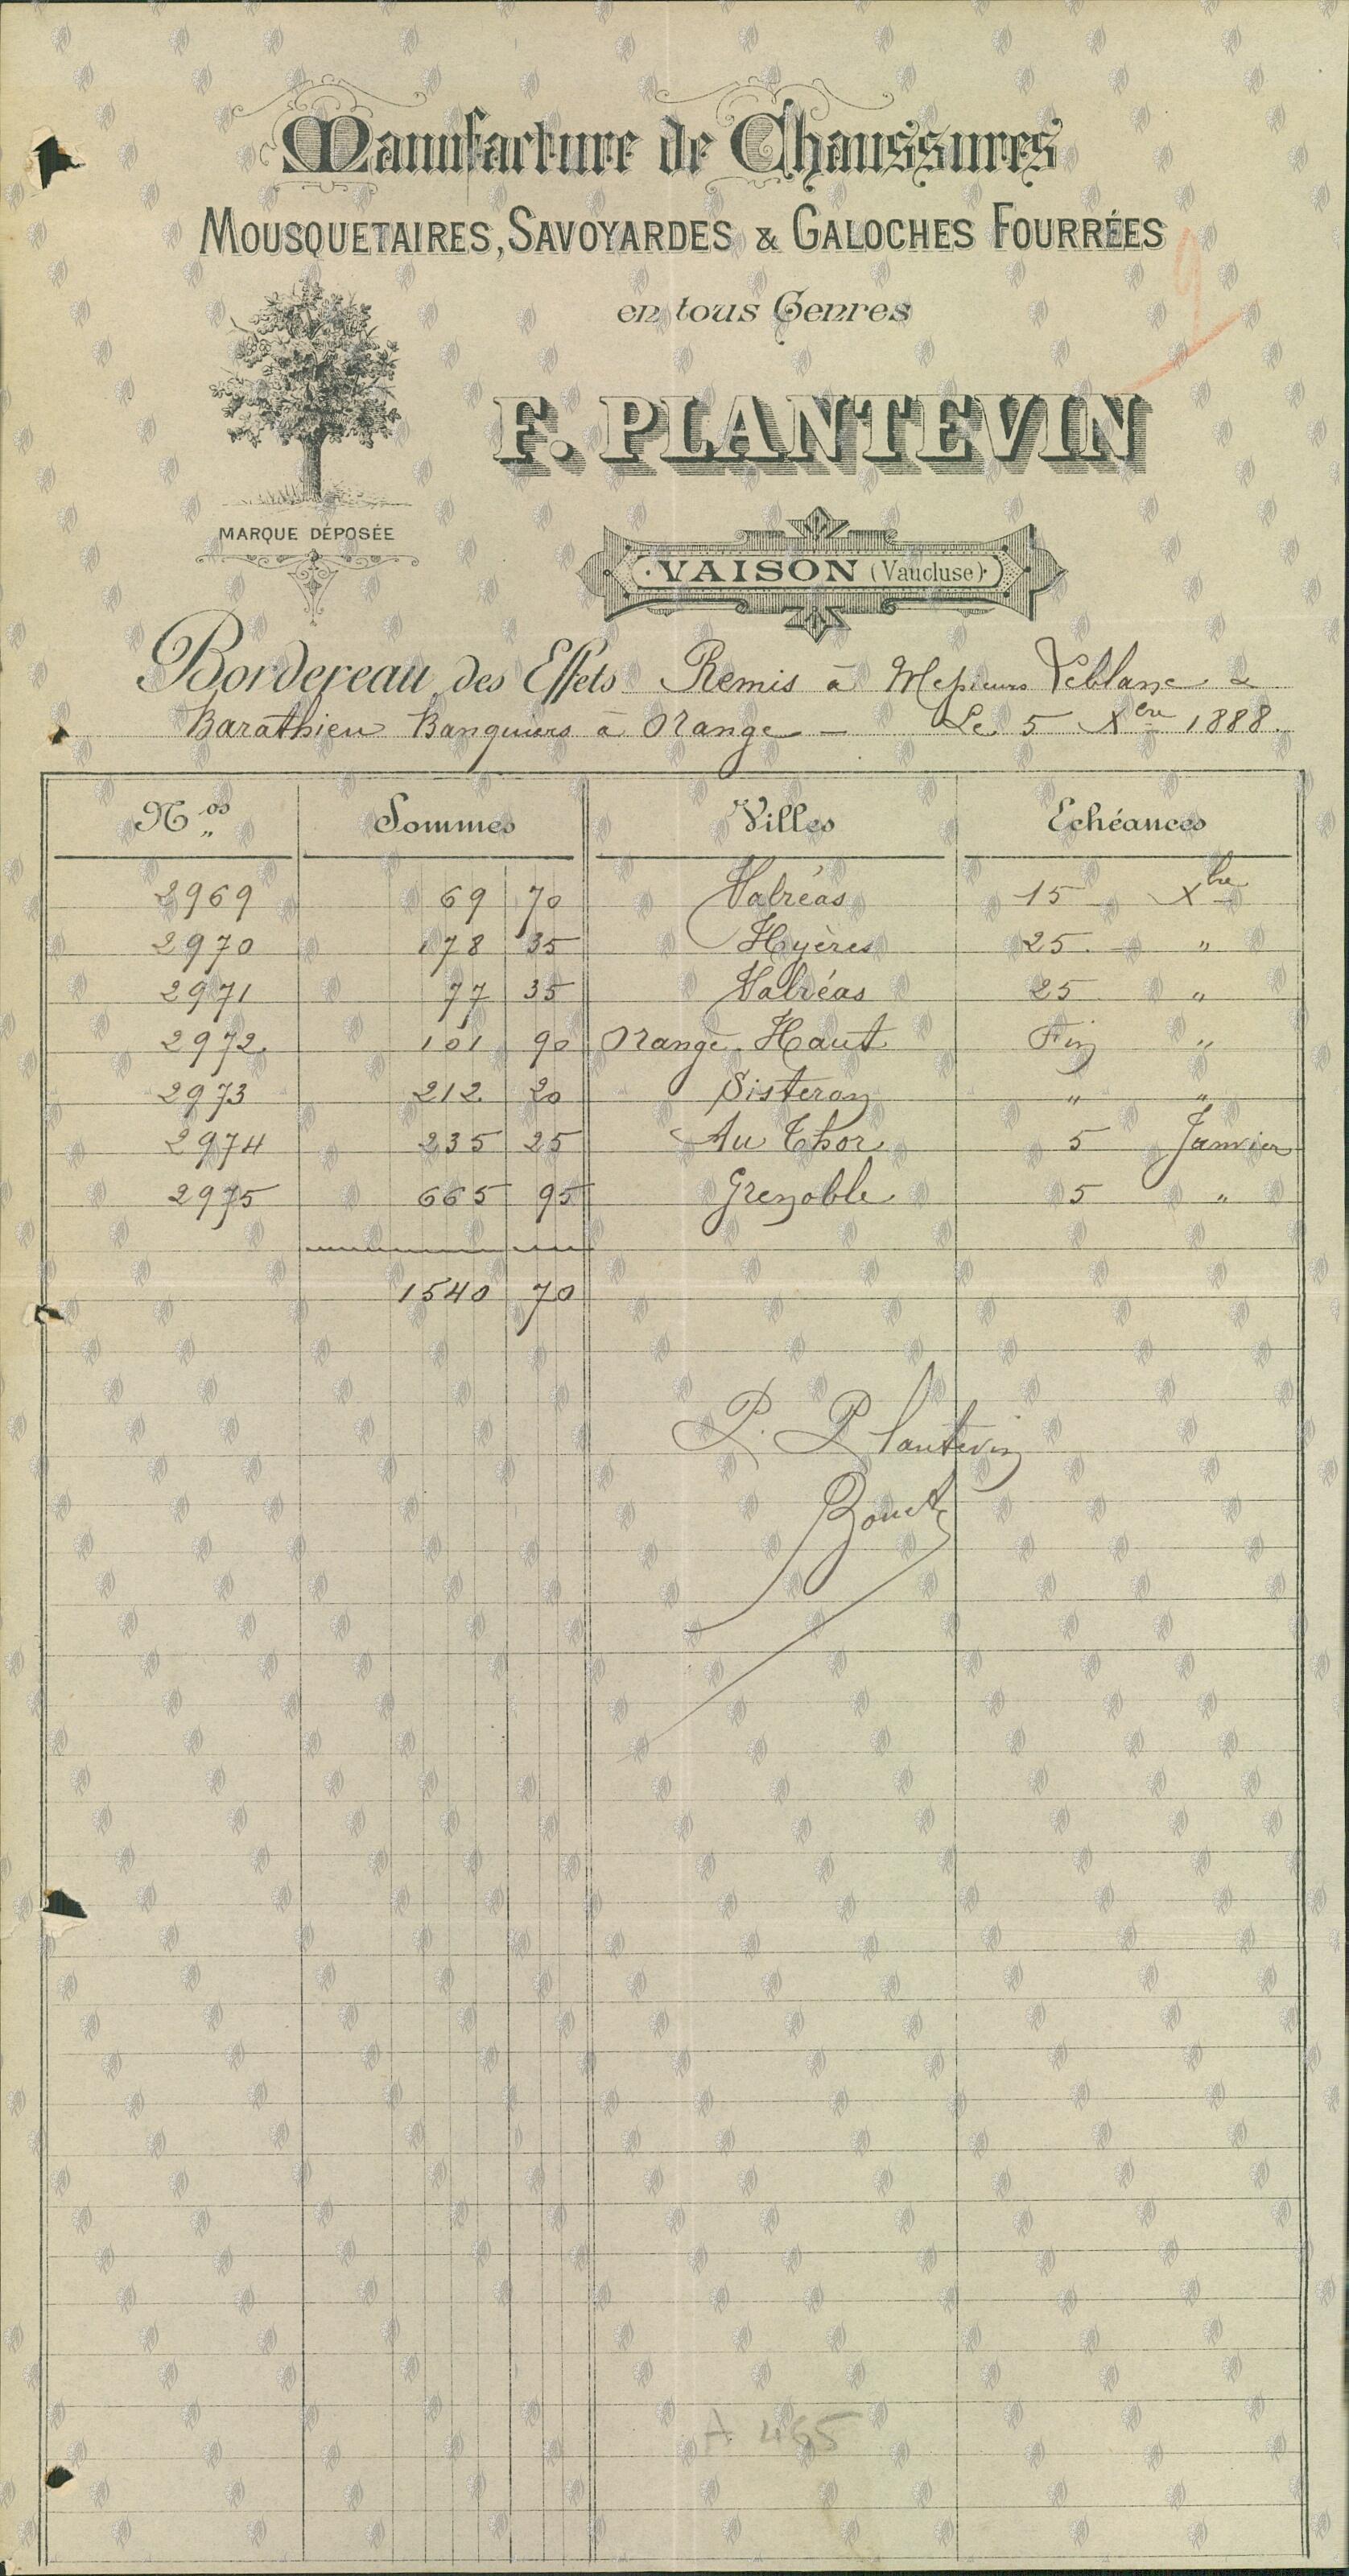 Manufacture de Chaussures
MOUSQUETAIRES, SAVOYARDES & GALOCHES FOURRÉES
en tous Genres
F. PLANTEVIN
MARQUE DÉPOSÉE
VAISON (Vaucluse)
Bordereau des Effets Remis à Messieurs Leblanc &
Barathieu Banquiers à Orange — Le 5 Xbre 1888.
Nos Sommes Villes Echéances
2969 69 70 Valréas 15 Xbre
2970 178 35 Hyères 25 "
2971 77 35 Valréas 25 "
2972 101 90 Orange Haut Fin "
2973 212 20 Sisteron " "
2974 235 25 Au Thor 5 Janvier
2975 665 95 Grenoble 5 "
1540 70
P. Plantevin
A 465